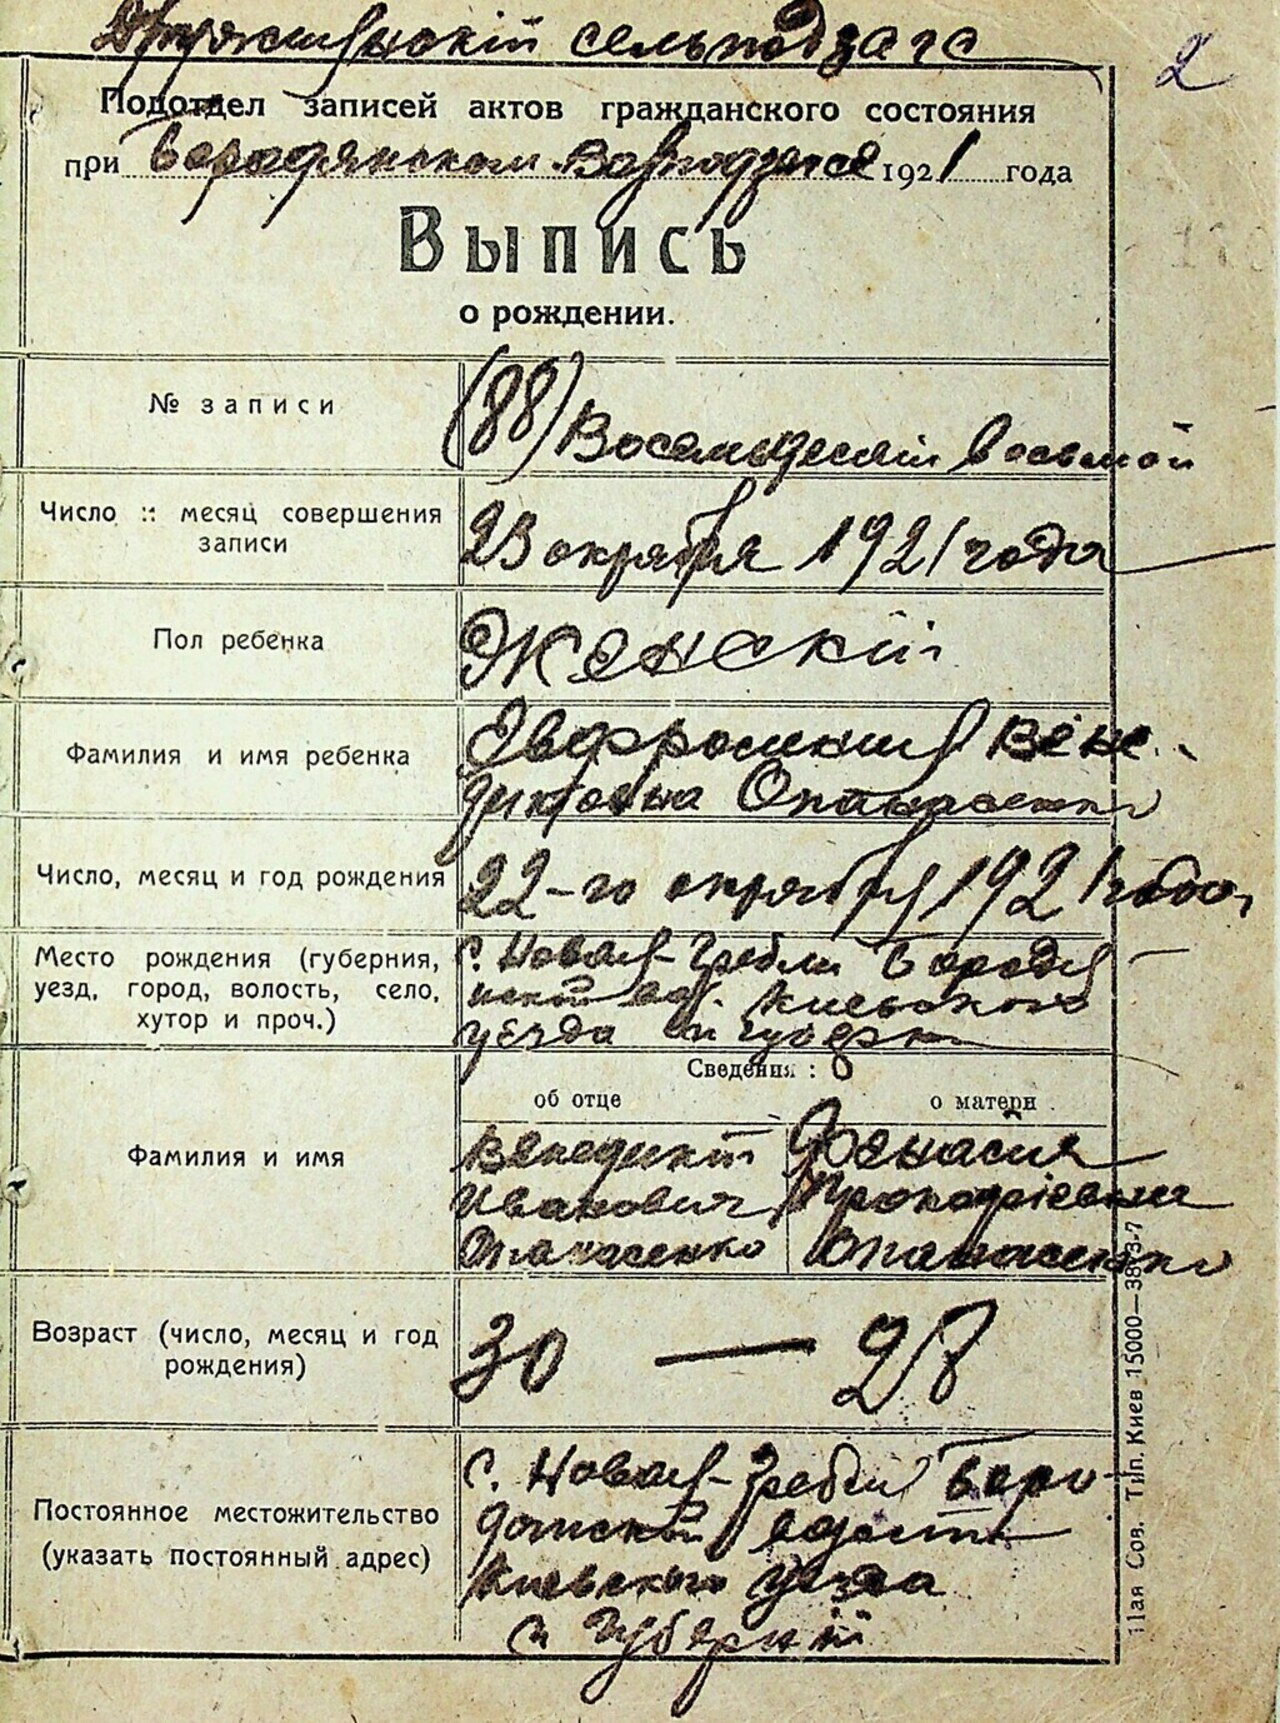 Дружинскій сельподзагс
2
Подотдел записей актов гражданского состояния
при Бородянском Волподзагсе 1921 года
Выпись
о рождении.
№ записи (88) Восемьдесят восьмой
Число :: месяц совершения
записи
23 октября 1921 года
Пол ребенка Женскій
Фамилия и имя ребенка
Евфросиния Вене-
диктовна Опанасенко
Число, месяц и год рождения 22-го октября 1921 года
Место рождения (губерния,
уезд, город, волость, село,
хутор и проч.)
с. Новая-Гребли Бородя
нской вол. Киевского
уезда и губерн
Сведения:
об отце о матери
Фамилия и имя
Венедикт
Иванович
Опанасенко
Афанасия
Прокофіевна
Опанасенко
Возраст (число, месяц и год
рождения)
30 — 28
Постоянное местожительство
(указать постоянный адрес)
с. Новая-Гребли Боро-
дянской волости
Киевского уезда
и Губерніи
11ая Сов. Тип. Киев 15000—3873-7